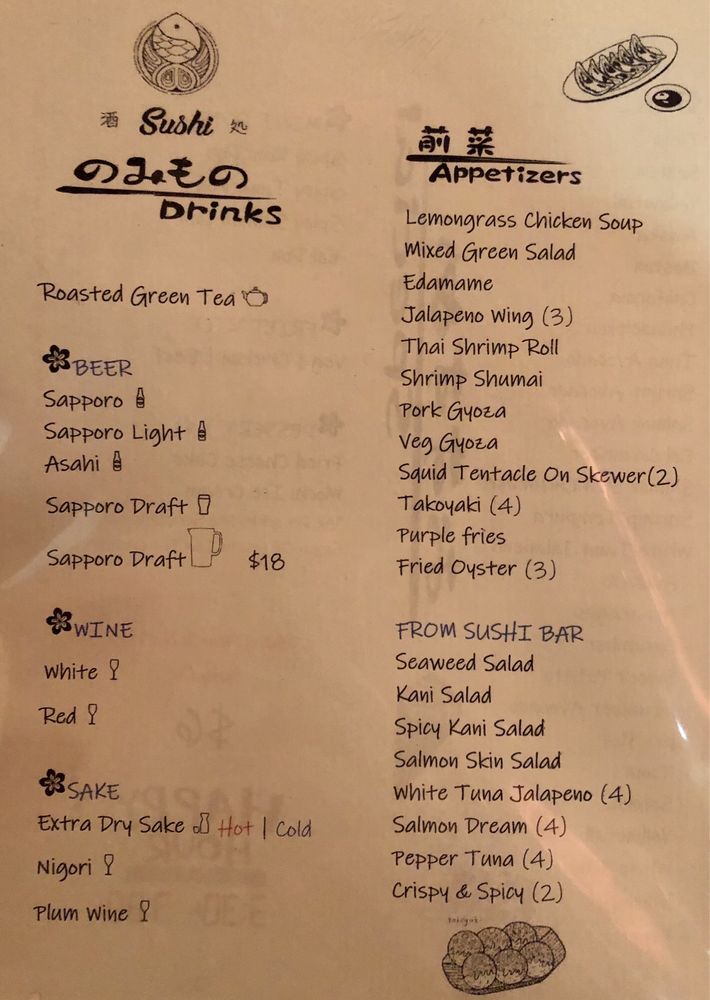 酒 Sushi 処
のみもの
Drinks
Roasted Green Tea
BEER
Sapporo
Sapporo Light
Asahi
Sapporo Draft
Sapporo Draft $18
WINE
White
Red
SAKE
Extra Dry Sake Hot | Cold
Nigori
Plum Wine
前菜
Appetizers
Lemongrass Chicken Soup
Mixed Green Salad
Edamame
Jalapeno Wing (3)
Thai Shrimp Roll
Shrimp Shumai
Pork Gyoza
Veg Gyoza
Squid Tentacle On Skewer(2)
Takoyaki (4)
Purple fries
Fried Oyster (3)
FROM SUSHI BAR
Seaweed Salad
Kani Salad
Spicy Kani Salad
Salmon Skin Salad
White Tuna Jalapeno (4)
Salmon Dream (4)
Pepper Tuna (4)
Crispy & Spicy (2)